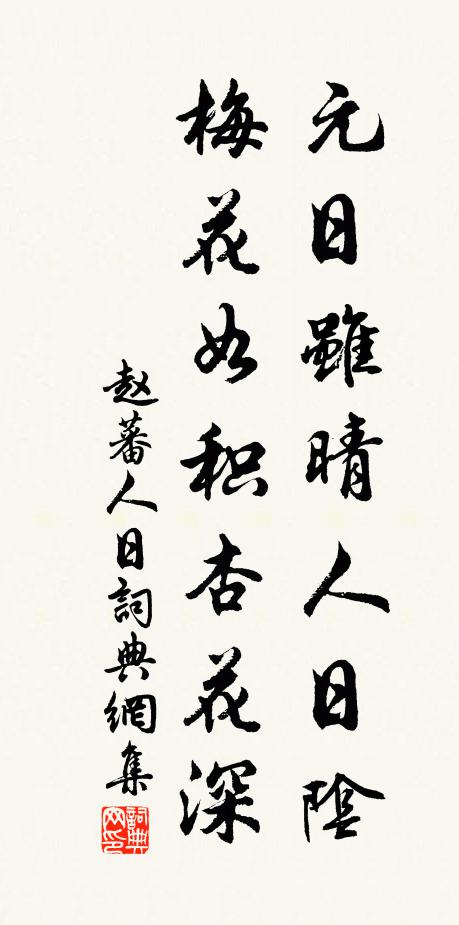 元日雖晴人日陰
梅花如积杏花深
赵蕃人日詞典網集
詞典
网印